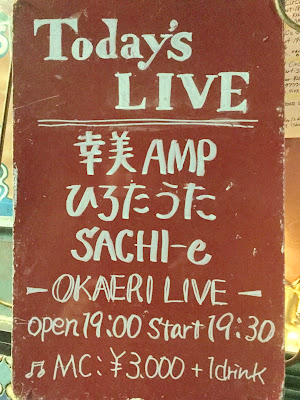 Today's
LIVE
幸美 AMP
ひろたうた
SACHI-e
- OKAERI LIVE -
open 19:00 Start 19:30
♫ MC: ¥3.000 + 1drink